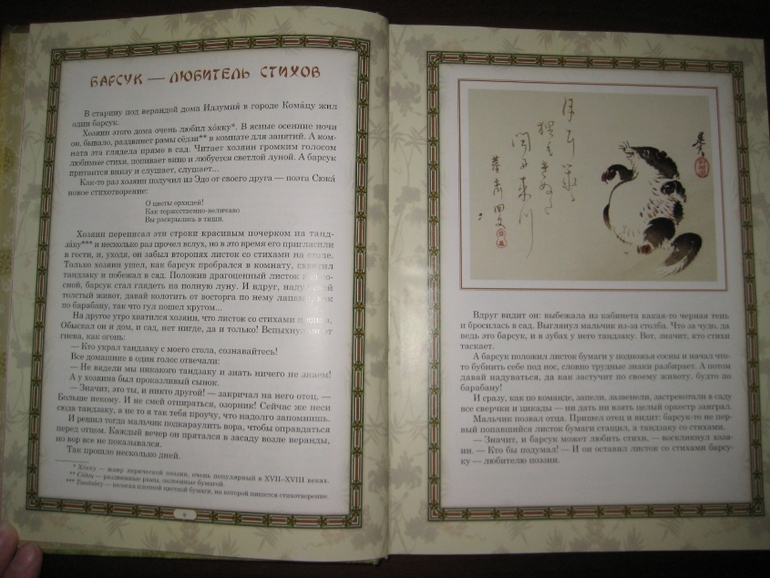 БАРСУК — ЛЮБИТЕЛЬ СТИХОВ
В старину под верандой дома Идзумия́ в городе Кома́цу жил
один барсук.
Хозяин этого дома очень любил хо́кку*. В ясные осенние ночи
он, бывало, раздвинет рамы сёдзи** в комнате для занятий. А ком-
ната эта глядела прямо в сад. Читает хозяин громким голосом
любимые стихи, попивает вино и любуется светлой луной. А барсук
притаится внизу и слушает, слушает...
Как-то раз хозяин получил из Эдо от своего друга — поэта Сюка́
новое стихотворение:
О цветы орхидей!
Как торжественно-величаво
Вы раскрылись в тиши.
Хозяин переписал эти строки красивым почерком на танд-
за́ку*** и несколько раз прочел вслух, но в это время его пригласили
в гости, и, уходя, он забыл второпях листок со стихами на столе.
Только хозяин ушел, как барсук пробрался в комнату, схватил
тандзаку и побежал в сад. Положив драгоценный листок под со-
сной, барсук стал глядеть на полную луну. И вдруг, надув свой
толстый живот, давай колотить от восторга по нему лапами, как
по барабану, так что гул пошел кругом...
На другое утро хватился хозяин, что листок со стихами пропал.
Обыскал он и дом, и сад, нет нигде, да и только! Вспыхнул он от
гнева, как огонь:
— Кто украл тандзаку с моего стола, сознавайтесь!
Все домашние в один голос отвечали:
— Не видели мы никакого тандзаку и знать ничего не знаем!
А у хозяина был проказливый сынок.
— Значит, это ты, и никто другой! — закричал на него отец. —
Больше некому. И не смей отпираться, озорник! Сейчас же неси
сюда тандзаку, а не то я так тебя проучу, что надолго запомнишь.
И решил тогда мальчик подкараулить вора, чтобы оправдаться
перед отцом. Каждый вечер он прятался в засаду возле веранды,
но вор все не показывался.
Так прошло несколько дней.
* Хо́кку — жанр лирической поэзии, очень популярный в XVII–XVIII веках.
** Сёдзи — раздвижные рамы, оклеенные бумагой.
*** Тандза́ку — полоска плотной цветной бумаги, на которой пишется стихотворение.
Вдруг видит он: выбежала из кабинета какая-то черная тень
и бросилась в сад. Выглянул мальчик из-за столба. Что за чудо, да
ведь это барсук, и в зубах у него тандзаку. Вот, значит, кто стихи
таскает.
А барсук положил листок бумаги у подножья сосны и начал что-
то бубнить себе под нос, словно трудные знаки разбирает. А потом
давай надуваться, да как застучит по своему животу, будто по
барабану!
И сразу, как по команде, запели, зазвенели, застрекотали в саду
все сверчки и цикады — ни дать ни взять целый оркестр заиграл.
Мальчик позвал отца. Пришел отец и видит: барсук-то не пер-
вый попавшийся листок бумаги стащил, а тандзаку со стихами.
— Значит, и барсук может любить стихи, — воскликнул хозя-
ин. — Кто бы подумал! — И он оставил листок со стихами барсу-
ку — любителю поэзии.